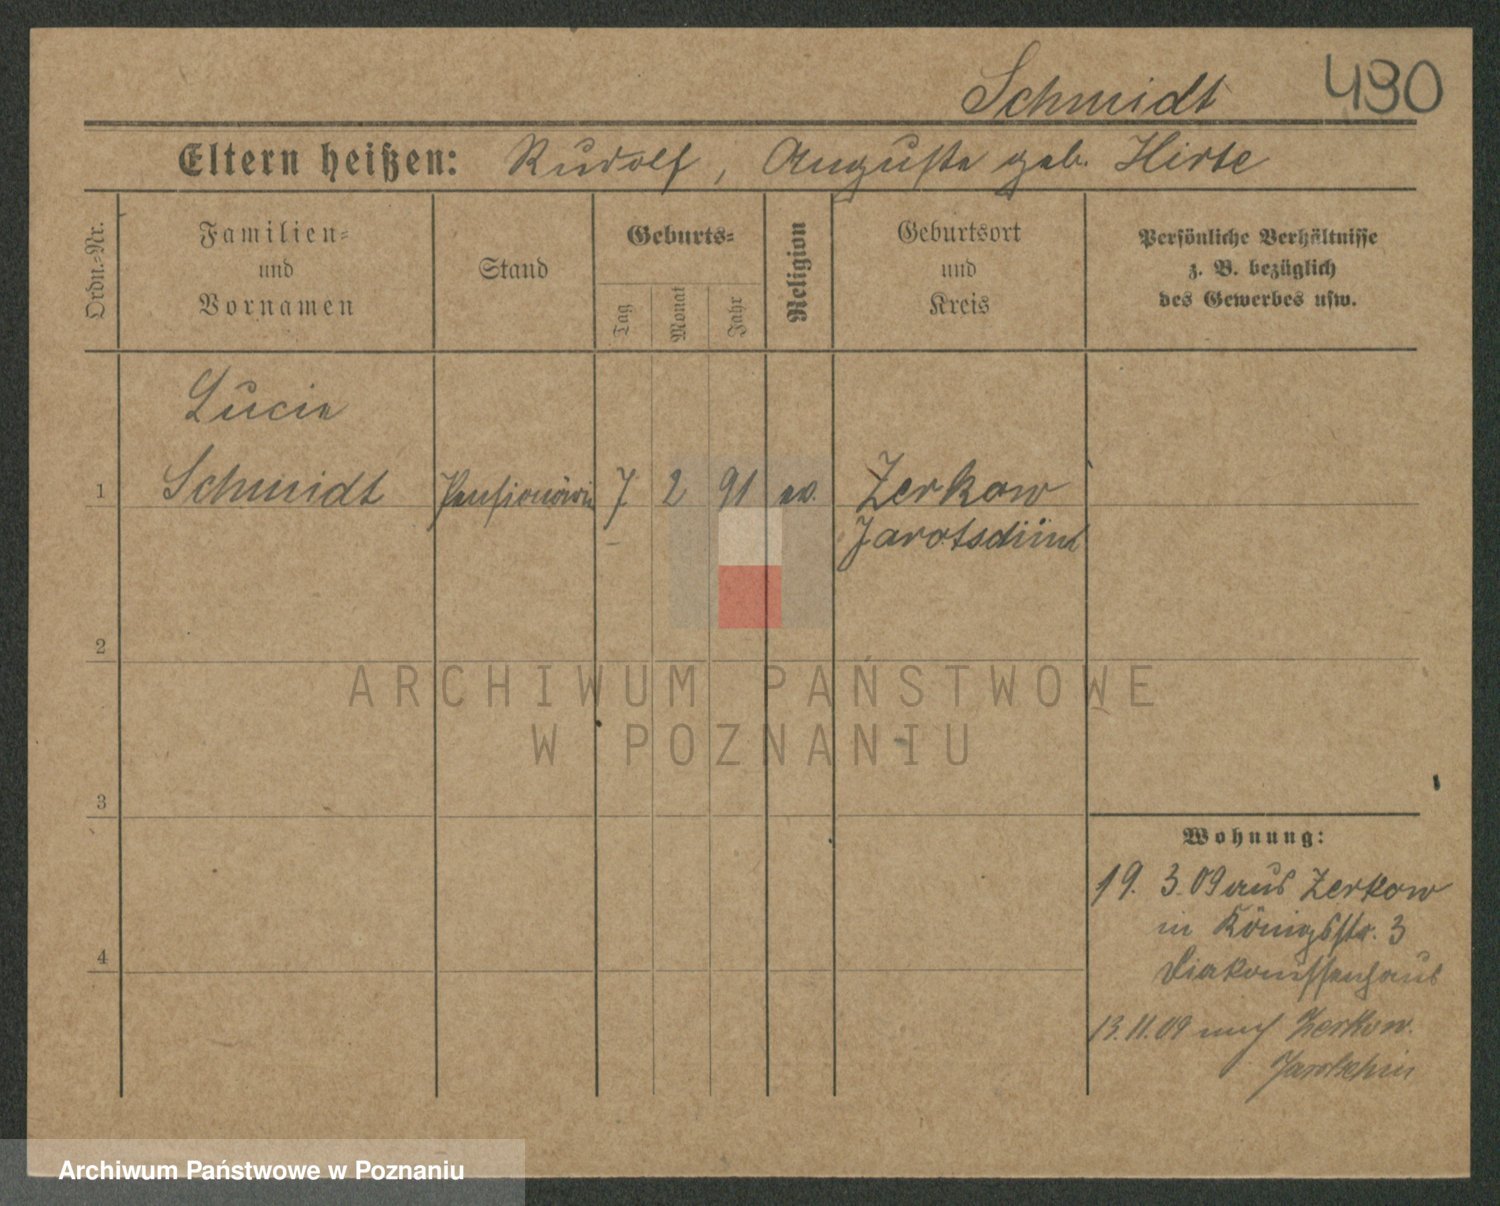 Schmidt 490
Eltern heißen: Rudolf, Auguste geb. Hirte
Ordn.-Nr.
Familien-
und
Vornamen
Stand
Geburts-
Tag
Monat
Jahr
Religion
Geburtsort
und
Kreis
Persönliche Verhältnisse
z. B. bezüglich
des Gewerbes usw.
Lucie
1 Schmidt Pensionärin 7 2 91 ev. Zerkow
Jarotschin
2
ARCHIWUM PAŃSTWOWE
W POZNANIU
3
Wohnung:
19. 3. 09 aus Zerkow
in Königsstr. 3
Diakonissenhaus
4
13. 11. 09 nach Zerkow.
Jarotschin
Archiwum Państwowe w Poznaniu